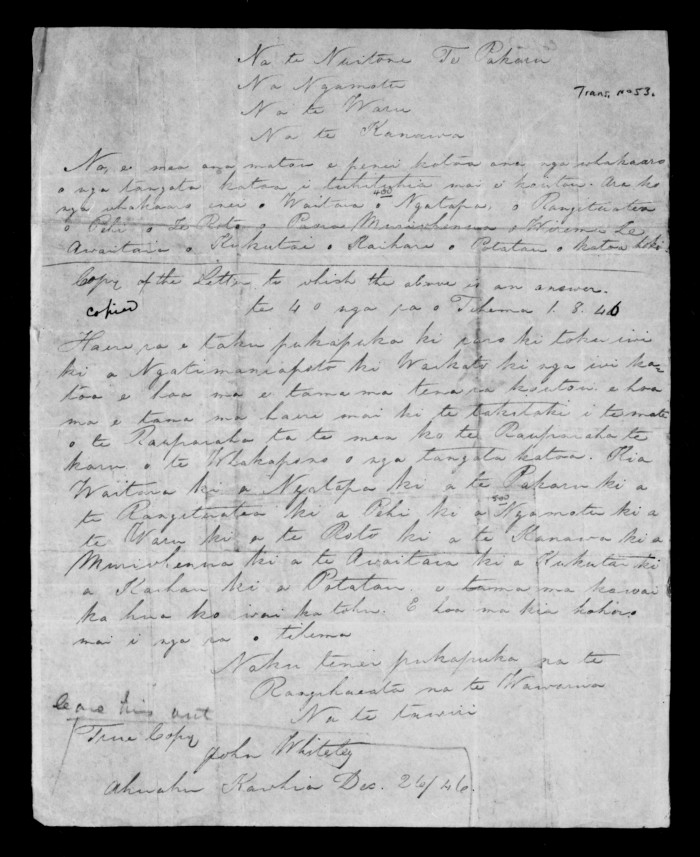 Na te Nuitone Te Pakaru
Na Ngamotu
Trans. no 53.
Na te Waru
Na te Kanawa
No, e mea ana matou e penei katoa ana nga whakaaro
o nga tangata katoa i tuhituhia mai e koutou. Ara ko
400
nga whakaaro enei o Waitara o Ngatapa, o Rangituatea
o Pehi o Te Roto o Paerae Muriwhenua o Wirema te
Awaitaia o Kukutai o Kaihau o Potatau o katoa hoki.
Copy of the Letter to which the above is an answer.
copied
te 4 o nga ra o Tihema 1. 8. 46
Haere ra e taku pukapuka ki runga ki toku iwi
ki a Ngatimaniapoto ki Waikato ki nga iwi ka-
toa e hoa ma e tama ma tena ra koutou e hoa
ma e tama ma haere mai ki te takitaki i te mate
o te Rauparaha ta te mea ko te Rauparaha te
karu o te Whakapono o nga tangata katoa. Kia
Waitara ki a Ngatapa ki a te Pakaru ki a
te Rangituatea ki a Pehi ki a Ngamotu ki a
te Waru ki a te Roto ki a te Kanawa ki a
Muriwhenua ki a te Awaitaia ki a Kukutai ki
a Kaihau ki a Potatau. e tama ma kawai
ka hua ko wai ka tohu. E hoa ma kia hohoro
mai i nga ra o tihema
Naku tenei pukapuka na te
Rangihaeata na te Wawarua
Na te tawiri
leave this out
True Copy
John Whiteley
Ahuahu Kawhia Dec. 26/46.